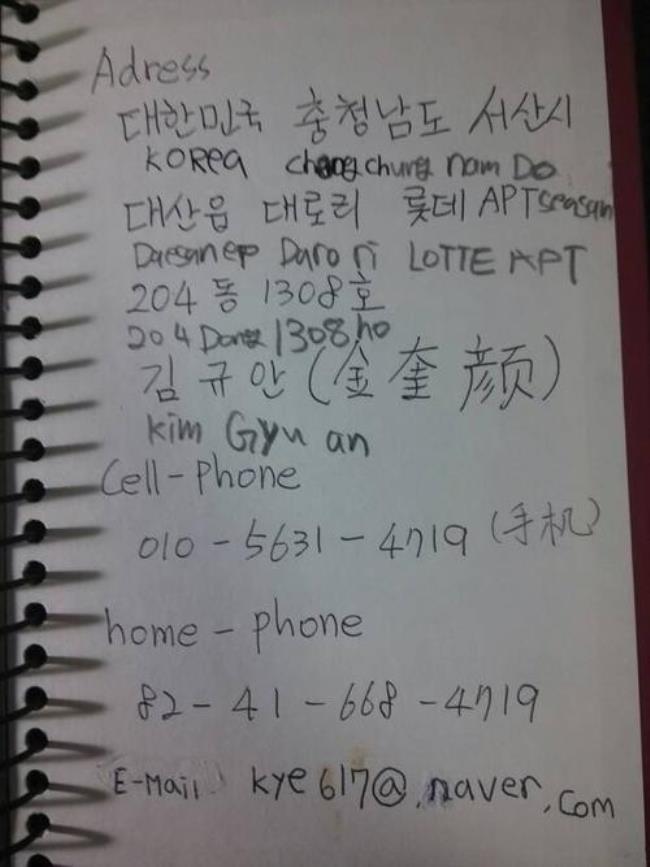 Adress
대한민국 충청남도 서산시
KOREA chongchung nam Do
대산읍 대로리 롯데 APT seasan
Daesan ep Daro ri LOTTE APT
204동 1308호
204 Dong 1308 ho
김 규 안 (金 奎 颜)
kim Gyu an
Cell-phone
010-5631-4719 (手机)
home-phone
82-41-668-4719
E-Mail kye617@.naver.com